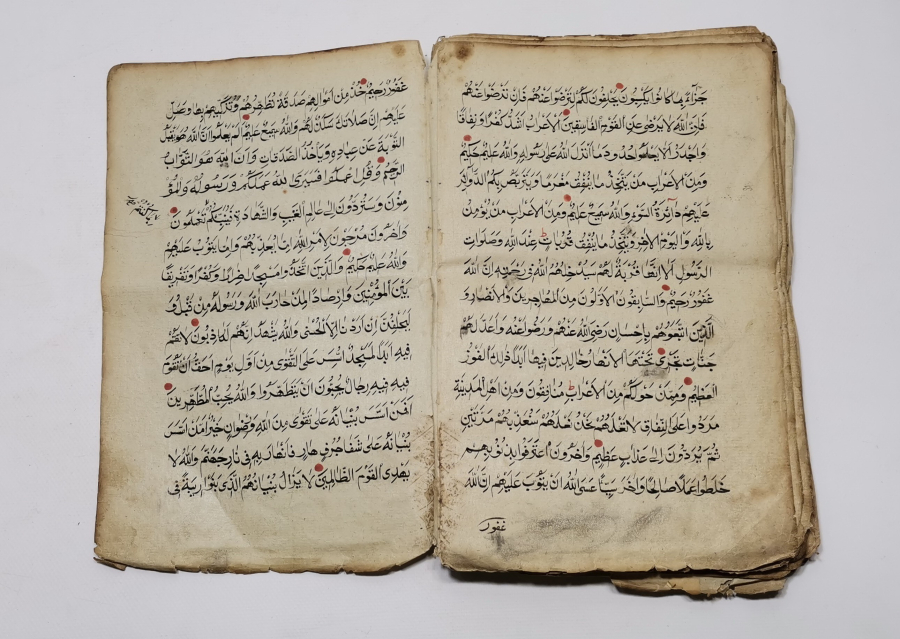 جزآء بما كانوا يكسبون يحلفون لكم لترضوا عنهم فان ترضوا عنهم
فان الله لا يرضى عن القوم الفاسقين الاعراب اشد كفرا ونفاقا
واجدر الا يعلموا حدود ما انزل الله على رسوله والله عليم حكيم
ومن الاعراب من يتخذ ما ينفق مغرما ويتربص بكم الدوآئر
عليهم دآئرة السوء والله سميع عليم ومن الاعراب من يؤمن
بالله واليوم الاخر ويتخذ ما ينفق قربات عند الله وصلوات
الرسول الا انها قربة لهم سيدخلهم الله في رحمته ان الله
غفور رحيم والسابقون الاولون من المهاجرين والانصار و
الذين اتبعوهم باحسان رضي الله عنهم ورضوا عنه واعد لهم
جنات تجري تحتها الانهار خالدين فيها ابدا ذلك الفوز
العظيم وممن حولكم من الاعراب منافقون ومن اهل المدينة
مردوا على النفاق لا تعلمهم نحن نعلمهم سنعذبهم مرتين
ثم يردون الى عذاب عظيم واخرون اعترفوا بذنوبهم
خلطوا عملا صالحا واخر سيئا عسى الله ان يتوب عليهم ان الله
غفور
غفور رحيم خذ من اموالهم صدقة تطهرهم وتزكيهم بها وصل
عليهم ان صلاتك سكن لهم والله سميع عليم الم يعلموا ان الله هو يقبل
التوبة عن عباده وياخذ الصدقات وان الله هو التواب
الرحيم وقل اعملوا فسيرى الله عملكم ورسوله والمؤ
منون وستردون الى عالم الغيب والشهادة فينبئكم بما كنتم تعملون
واخرون مرجون لامر الله اما يعذبهم واما يتوب عليهم
والله عليم حكيم والذين اتخذوا مسجدا ضرارا وكفرا وتفريقا
بين المؤمنين وارصادا لمن حارب الله ورسوله من قبل و
ليحلفن ان اردنا الا الحسنى والله يشهد انهم لكاذبون لا تقم
فيه ابدا لمسجد اسس على التقوى من اول يوم احق ان تقوم
فيه فيه رجال يحبون ان يتطهروا والله يحب المطهرين
افمن اسس بنيانه على تقوى من الله ورضوان خير امن اسس
بنيانه على شفا جرف هار فانهار به في نار جهنم والله لا
يهدي القوم الظالمين لا يزال بنيانهم الذي بنوا ريبة في